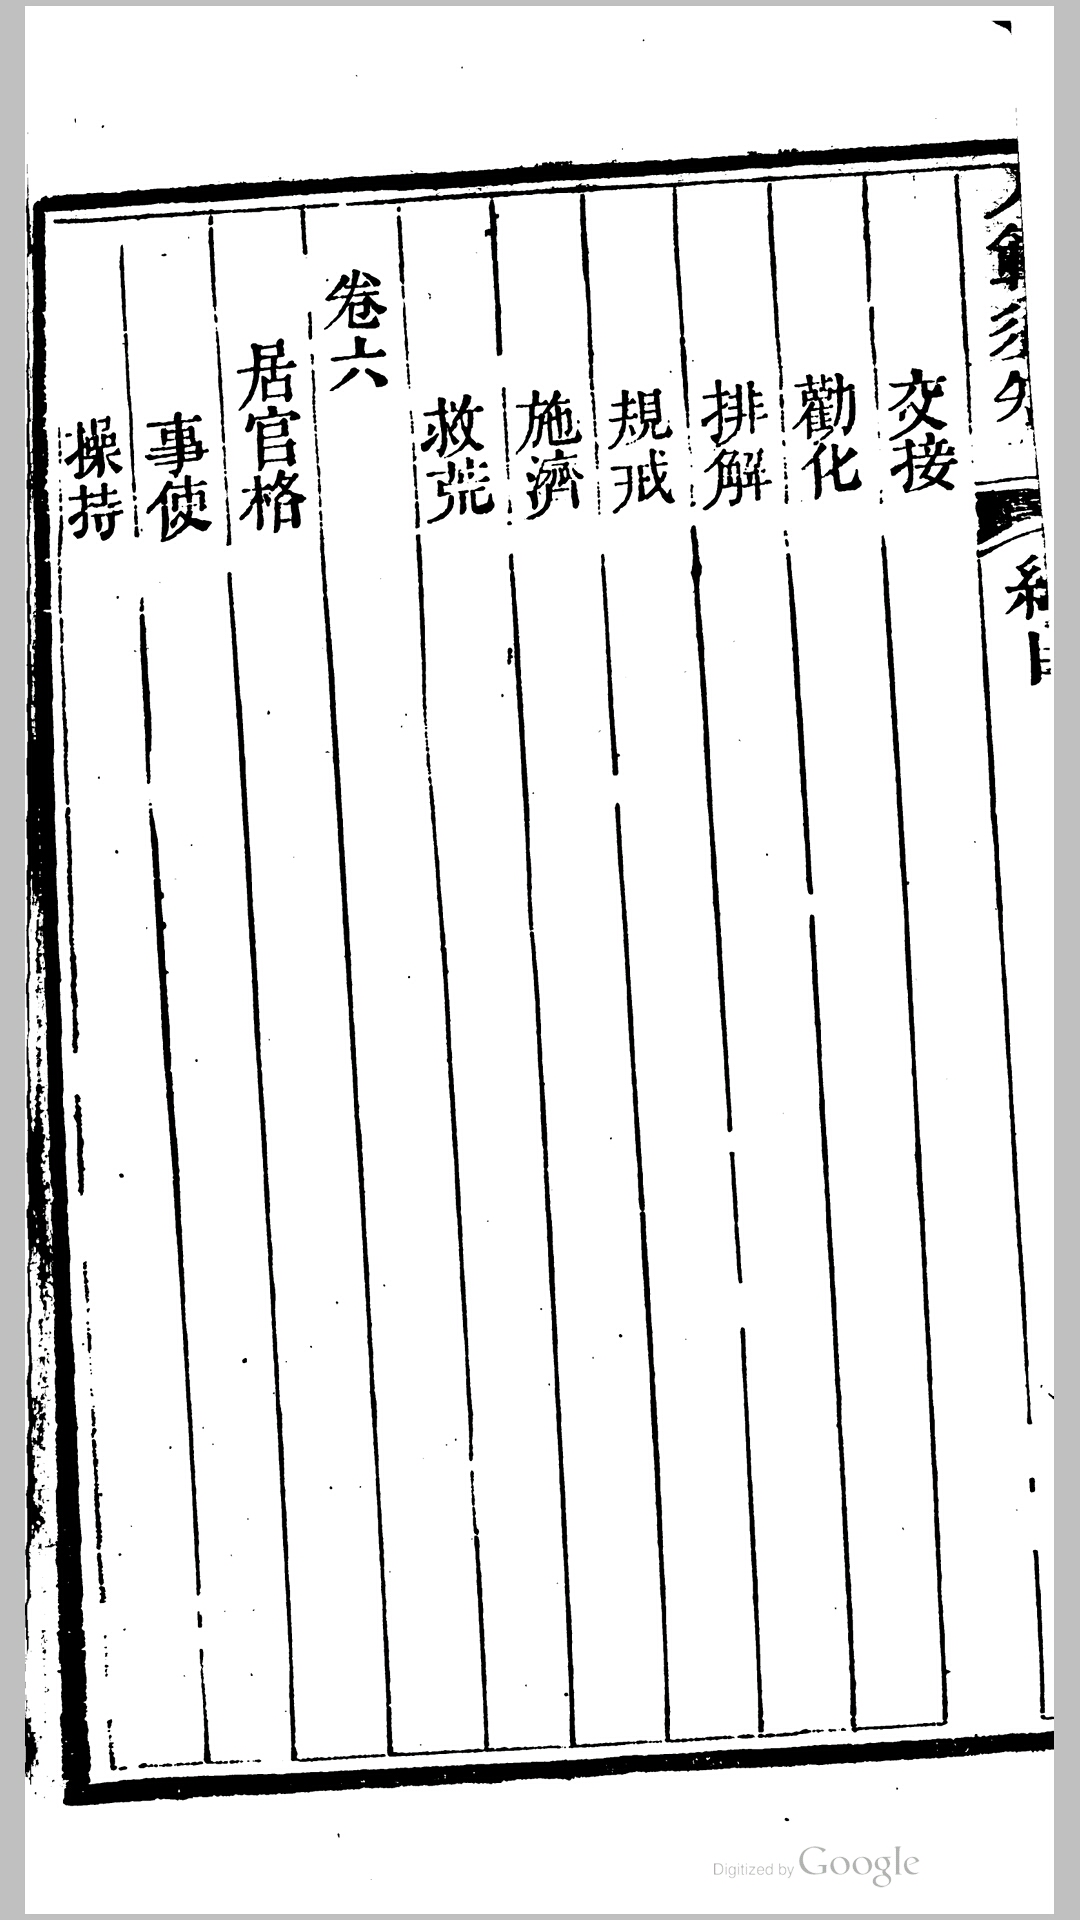 交接
勸化
排解
規戒
施濟
救荒
卷六
居官格
事使
操持
Digitized by Google